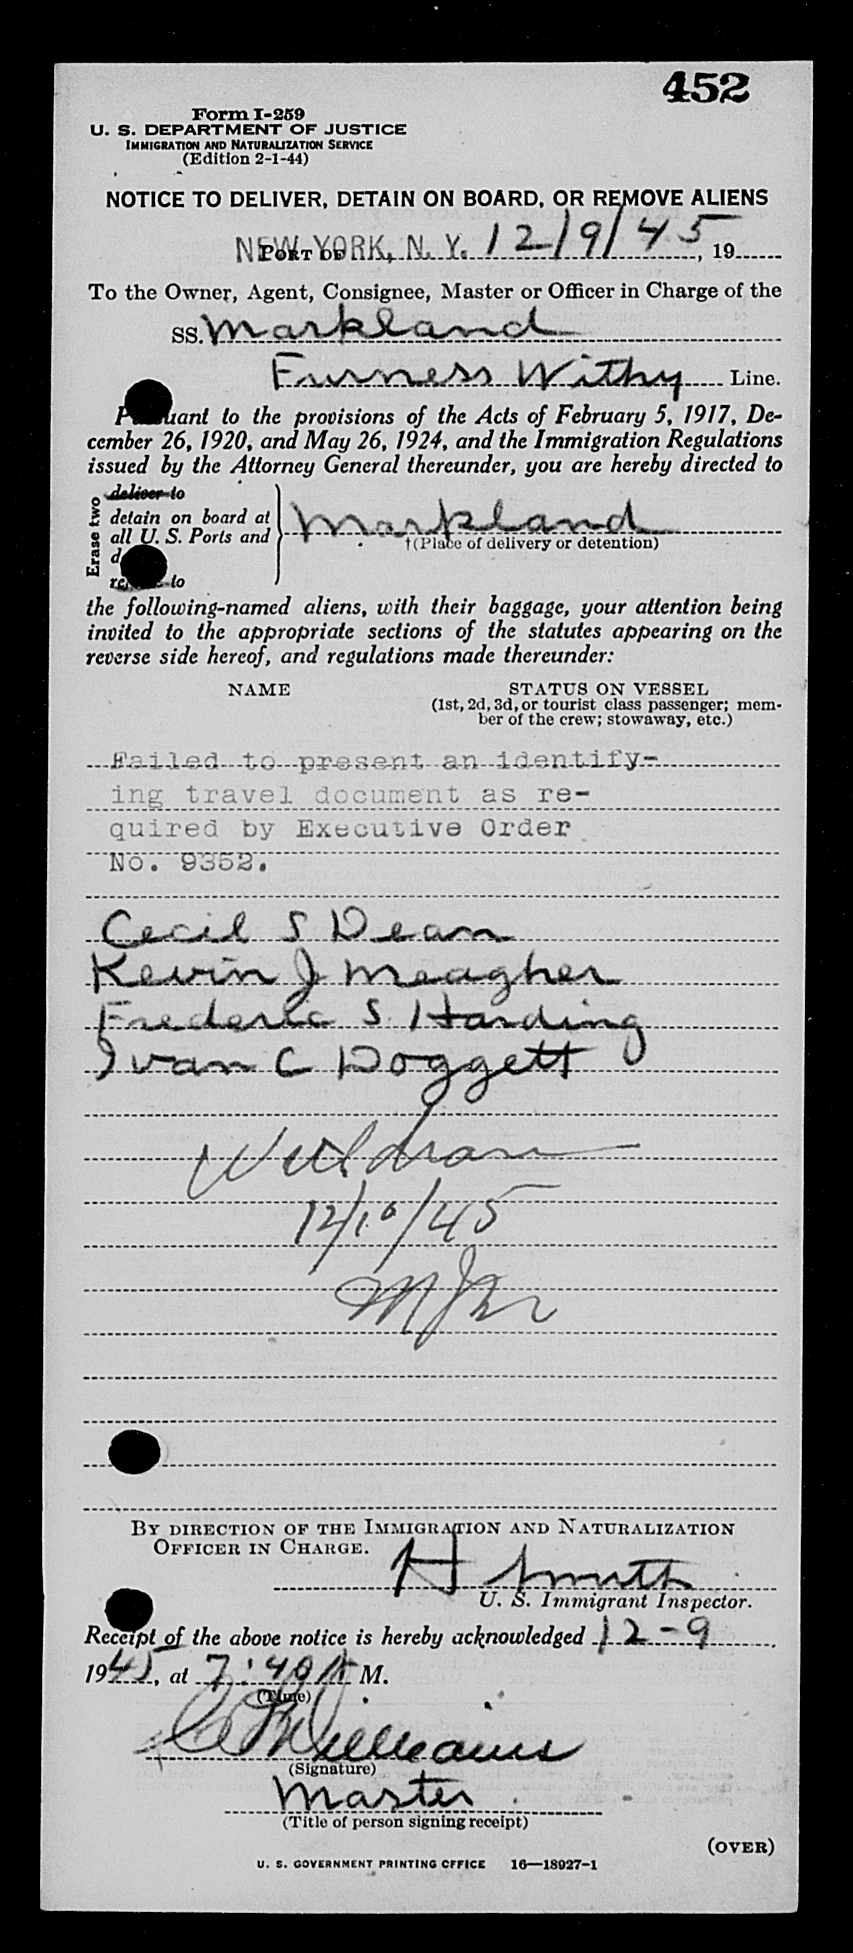 452
Form I-259
U. S. DEPARTMENT OF JUSTICE
IMMIGRATION AND NATURALIZATION SERVICE
(Edition 2-1-44)
NOTICE TO DELIVER, DETAIN ON BOARD, OR REMOVE ALIENS
NEW YORK, N. Y. 12/9/45, 19
PORT OF
To the Owner, Agent, Consignee, Master or Officer in Charge of the
SS. Markland
Furness Withy Line.
Pursuant to the provisions of the Acts of February 5, 1917, De-
cember 26, 1920, and May 26, 1924, and the Immigration Regulations
issued by the Attorney General thereunder, you are hereby directed to
Erase two
deliver to
detain on board at
all U. S. Ports and
Markland
†(Place of delivery or detention)
to
the following-named aliens, with their baggage, your attention being
invited to the appropriate sections of the statutes appearing on the
reverse side hereof, and regulations made thereunder:
NAME STATUS ON VESSEL
(1st, 2d, 3d, or tourist class passenger; mem-
ber of the crew; stowaway, etc.)
Failed to present an identify-
ing travel document as re-
quired by Executive Order
No. 9352.
Cecil S Dean
Kevin J Meagher
Frederic S Harding
Ivan C Doggett
12/10/45
By direction of the Immigration and Naturalization
Officer in Charge.
H Smith
U. S. Immigrant Inspector.
Receipt of the above notice is hereby acknowledged 12-9,
1945, at 7:40 A M.
(Time)
Williams
(Signature)
Master
(Title of person signing receipt)
(OVER)
U. S. GOVERNMENT PRINTING OFFICE 16—18927-1